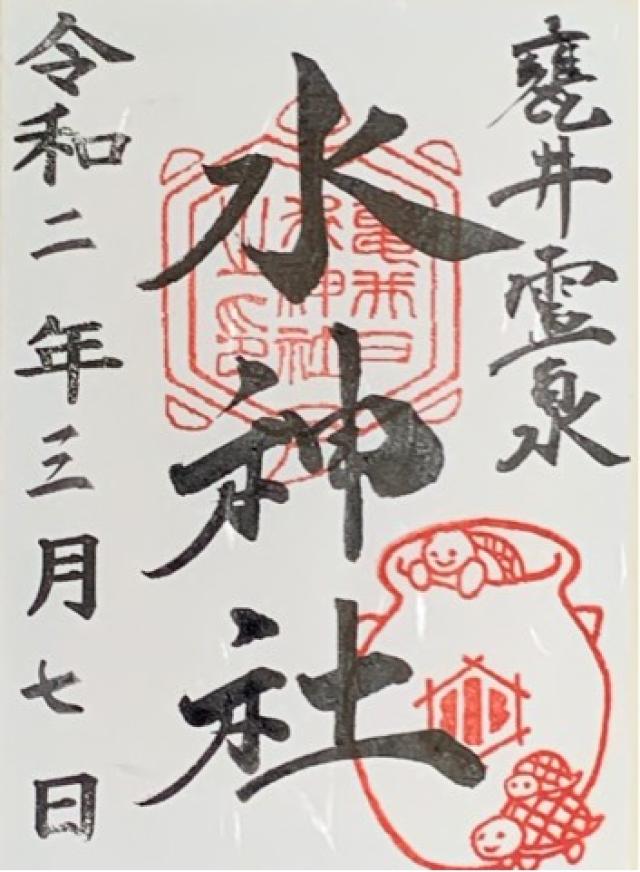 甕井霊泉
水神社
亀井戸
水神社
之印
水
令和二年三月七日